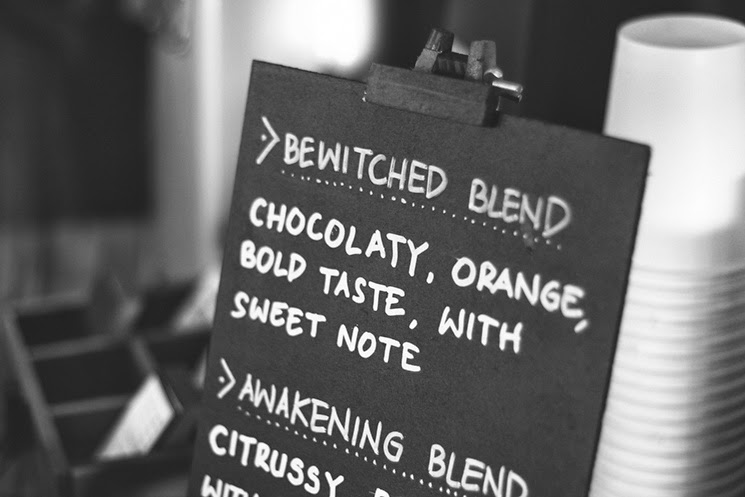 BEWITCHED BLEND
CHOCOLATY, ORANGE,
BOLD TASTE, WITH
SWEET NOTE
AWAKENING BLEND
CITRUSSY